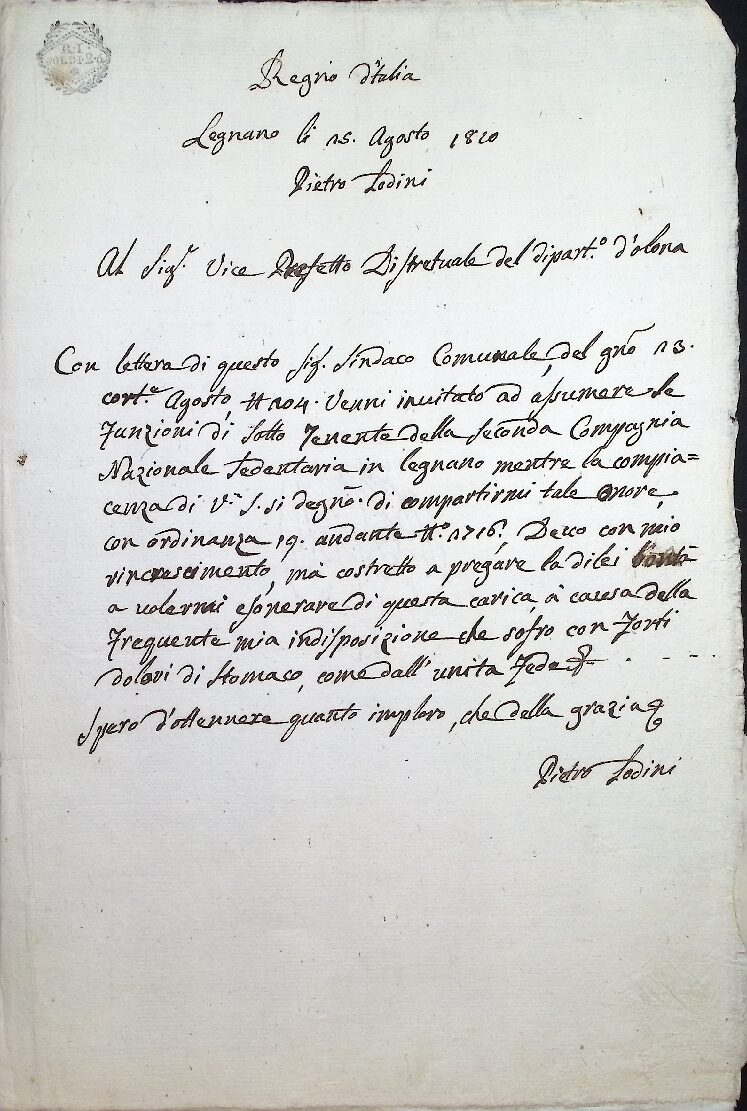 R. I.
SOLDI 2. 6
Regno d'Italia
Legnano li 15. Agosto 1810
Pietro Lodini
Al Sig.r Vice Prefetto Distretuale del dipart.o d'olona
Con lettera di questo Sig. Sindaco Comunale, del gno 13.
cort.e Agosto, N 104. Venni invitato ad assumere le
Funzioni di Sotto Tenente della Seconda Compagnia
Nazionale Sedentaria in legnano mentre la compia=
cenza di V.a S. si degnò di compartirmi tale onore,
con ordinanza 19. andante N.o 1716. Decco con mio
rincrescimento, mà costretto a pregare la dilei bontà
a volermi esonerare di questa carica, à causa della
Frequente mia indisposizione che sofro con Forti
dolori di Stomaco, come dall' unita Fede
Spero d'ottennere quanto imploro, che della grazia
Pietro Lodini